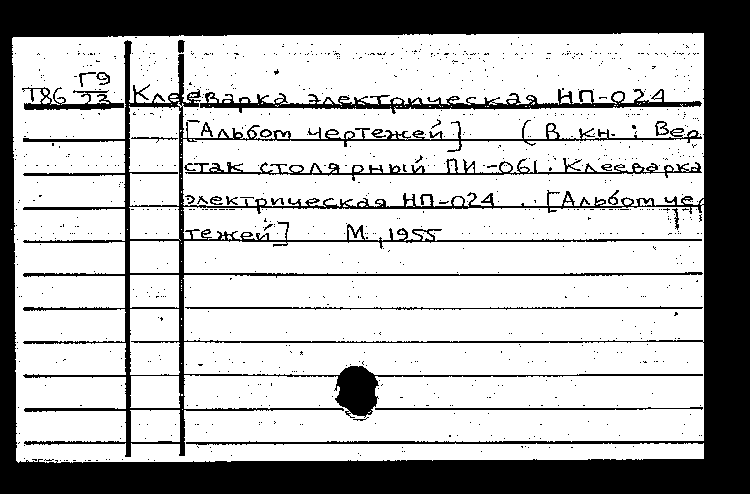 Г9
Т86 23 Клееварка электрическая НП-024
[Альбом чертежей] (В кн.: Вер
стак столярный ПИ-061. Клееварка
электрическая НП-024. [Альбом чер
тежей] М., 1955